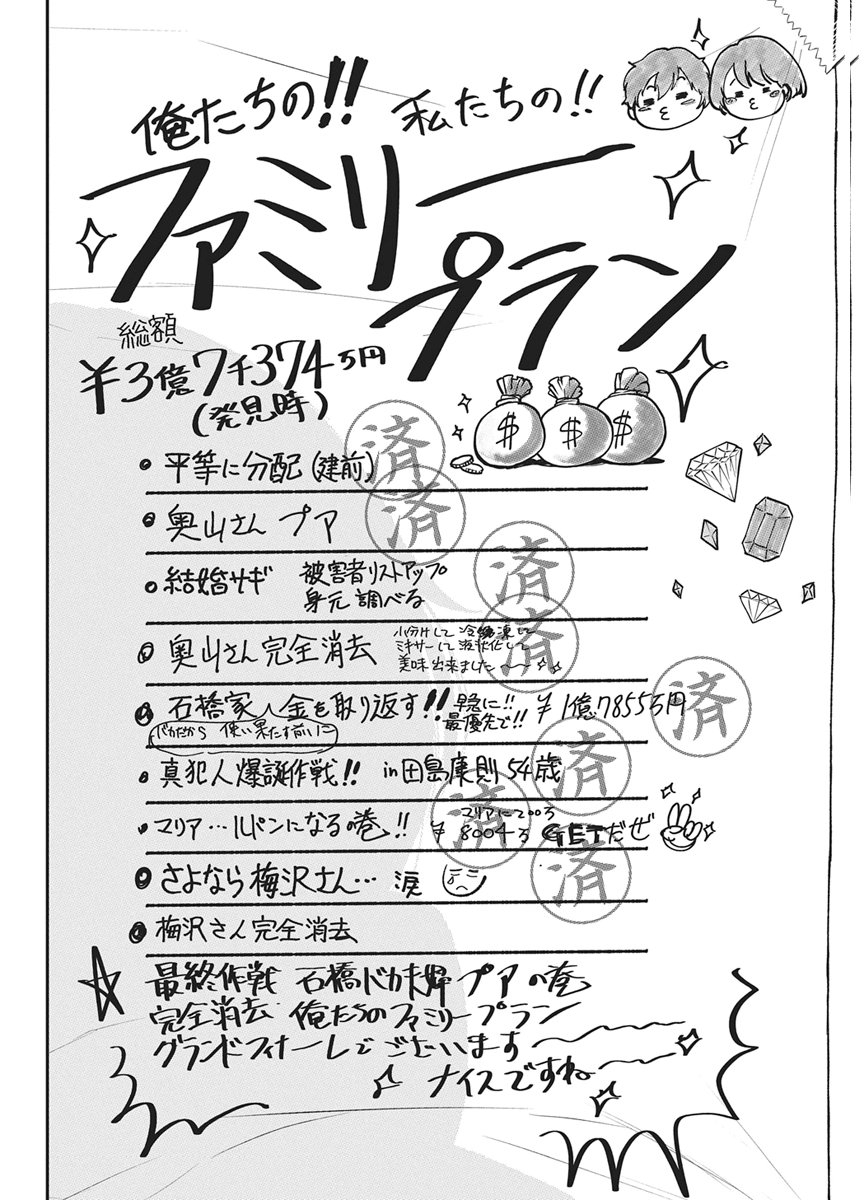 俺たちの!! 私たちの!!
ファミリー
プラン
総額
¥3億7千374万円
(発見時)
• 平等に分配(建前) 済
• 奥山さん プア 済
• 結婚サギ 被害者リストアップ 済
身元 調べる
• 奥山さん完全消去 小分けして 冷凍して 済
ミキサーして 液状化して
美味出来ました〜〜
• 石橋家へ金を取り返す!! 早急に!! ¥1億7855万円 済
最優先で!!
バカだから 使い果たす前に
• 真犯人爆誕作戦!! in田島康則54歳 済
• マリア…ルパンになる の巻!! マリアに200万 済
¥8004万 GETだぜ
• さよなら梅沢さん… 涙 済
• 梅沢さん完全消去
☆最終作戦 石橋バカ夫婦 プア の巻
完全消去 俺たちのファミリープラン
グランドフィナーレでございます
ナイスですね
$
$
$